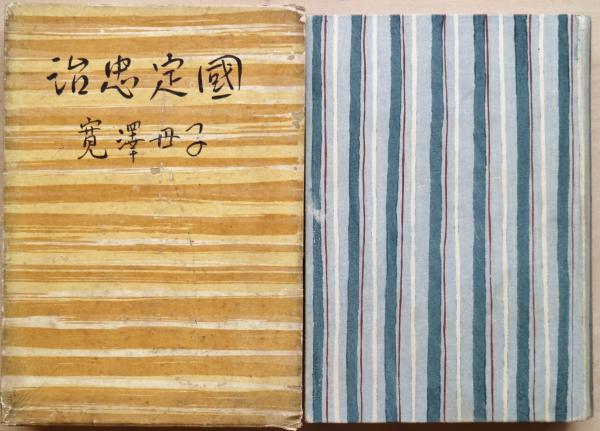 國定忠治
子母澤寛